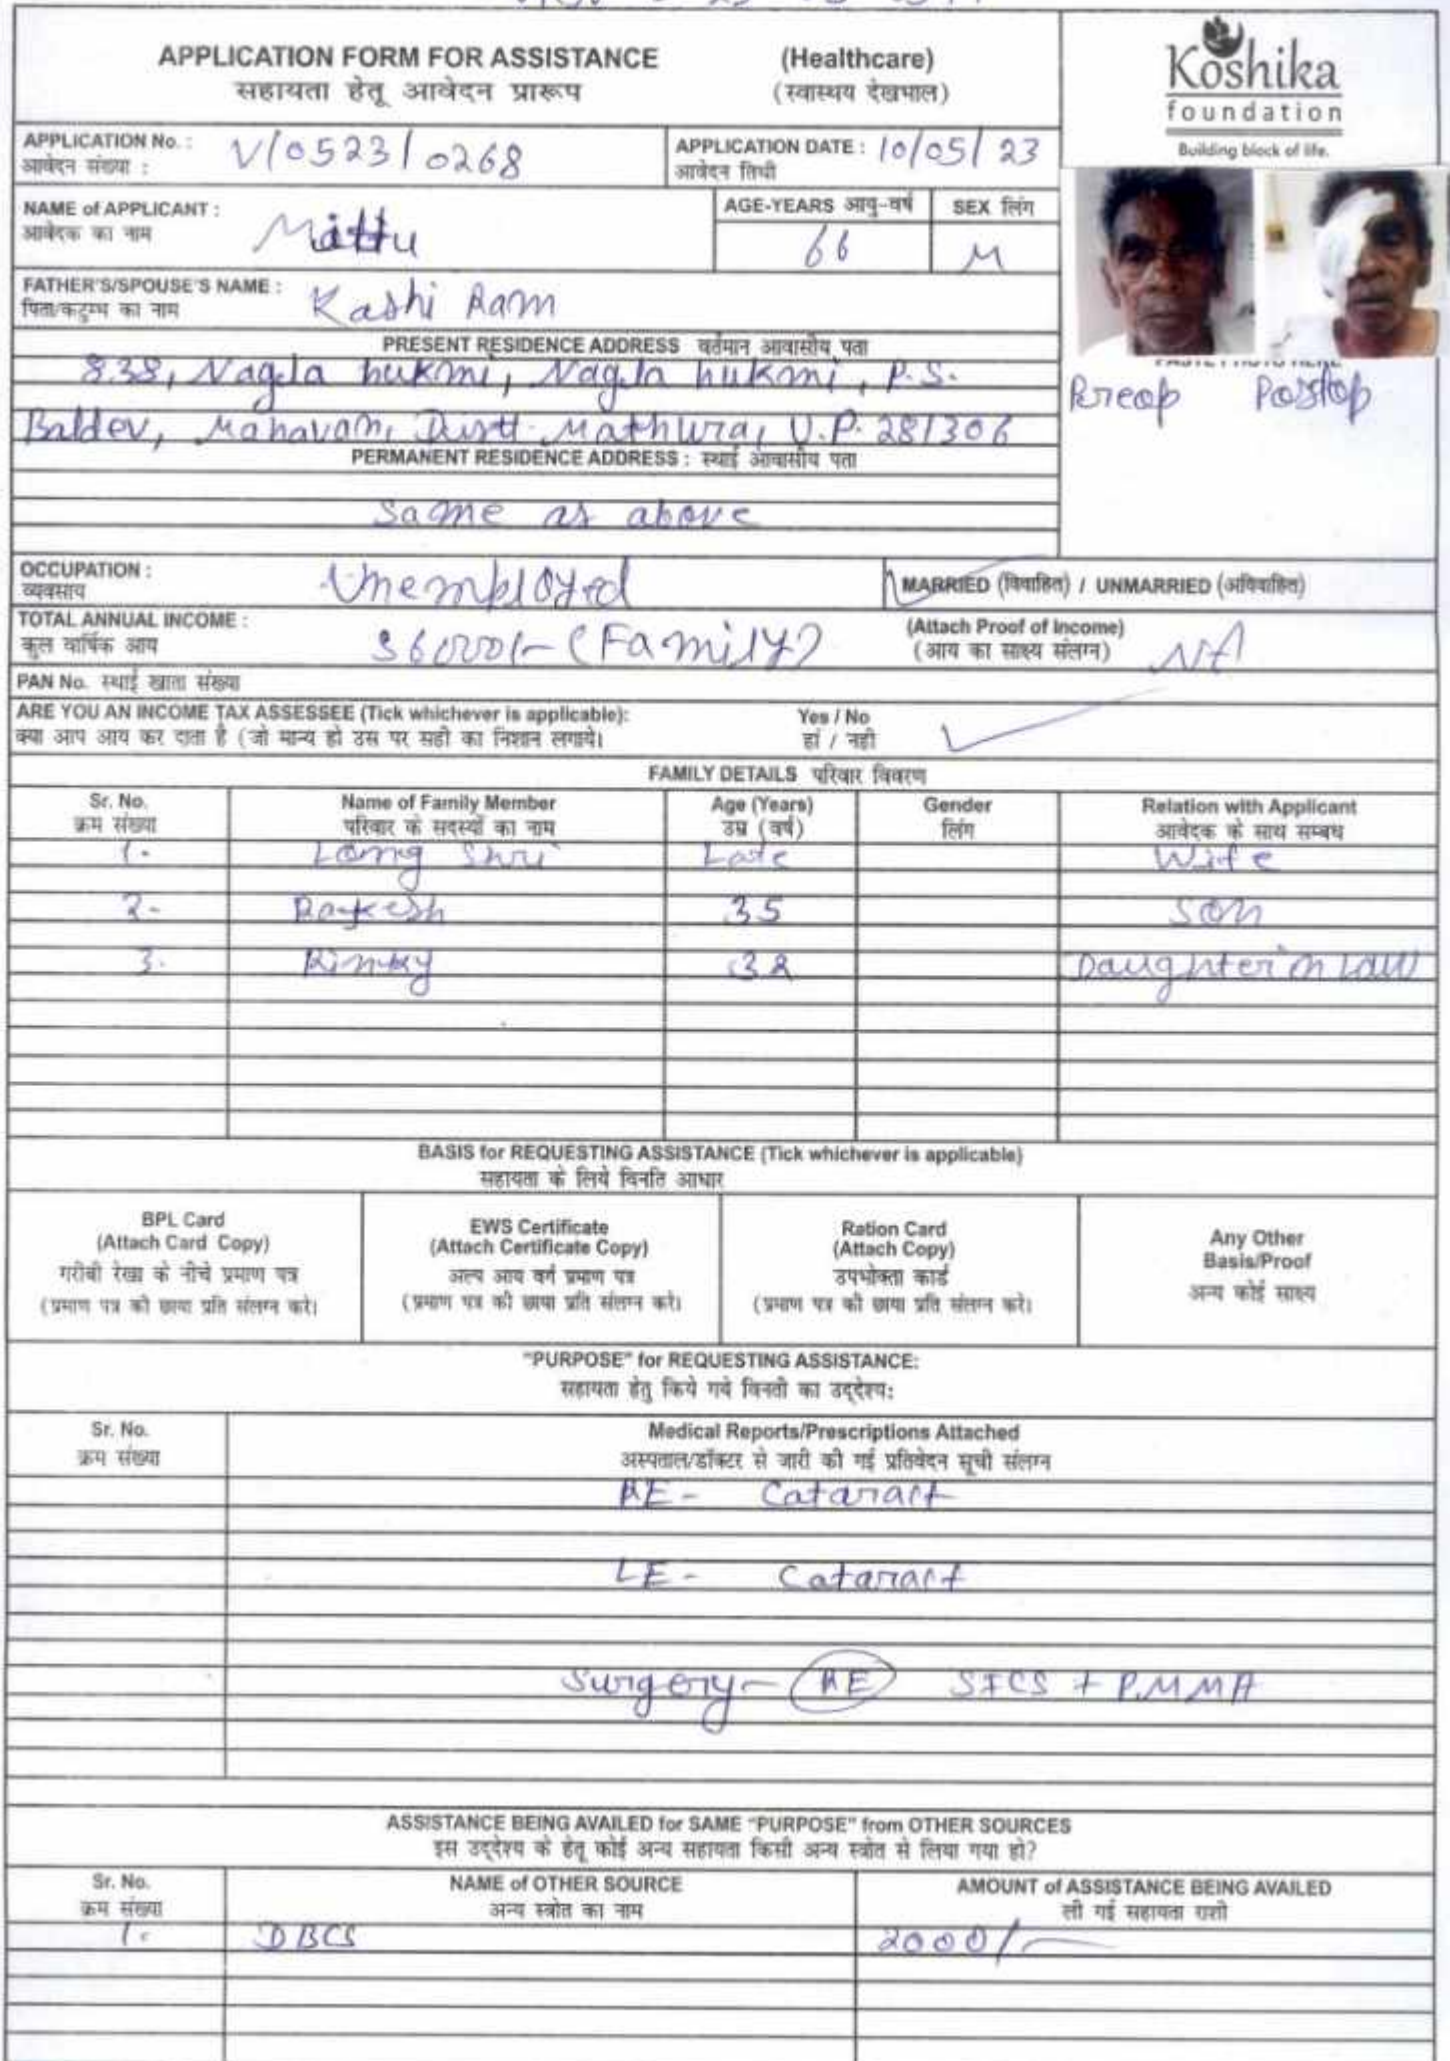 APPLICATION FORM FOR ASSISTANCE (Healthcare)
सहायता हेतू आवेदन प्रारूप (स्वास्थय देखभाल)
Koshika
foundation
Building block of life.
APPLICATION No. : V/0523/0268
आवेदन संख्या :
APPLICATION DATE : 10/05/23
आवेदन तिथी
NAME of APPLICANT : Mittu
आवेदक का नाम
AGE-YEARS आयु-वर्ष SEX लिंग
66 M
FATHER'S/SPOUSE'S NAME : Kashi Ram
पिता/कटुम्ब का नाम
PRESENT RESIDENCE ADDRESS वर्तमान आवासीय पता
838, Nagla hukmi, Nagla hukmi, P.S.
Baldev, Mahavan, Distt. Mathura, U.P. 281306
Preop Postop
PERMANENT RESIDENCE ADDRESS : स्थाई आवासीय पता
Same as above
OCCUPATION : Unemployed
व्यवसाय
MARRIED (विवाहित) / UNMARRIED (अविवाहित)
TOTAL ANNUAL INCOME : 36000/- (Family)
कुल वार्षिक आय
(Attach Proof of Income) NA
(आय का साक्ष्य संलग्न)
PAN No. स्थाई खाता संख्या
ARE YOU AN INCOME TAX ASSESSEE (Tick whichever is applicable): Yes / No
क्या आप आय कर दाता है (जो मान्य हो उस पर सही का निशान लगाये। हां / नही
FAMILY DETAILS परिवार विवरण
Sr. No. Name of Family Member Age (Years) Gender Relation with Applicant
क्रम संख्या परिवार के सदस्यों का नाम उम्र (वर्ष) लिंग आवेदक के साथ सम्बध
1. Long Shri Late Wife
2- Rakesh 35 Son
3. Rinky 32 Daughter in law
BASIS for REQUESTING ASSISTANCE (Tick whichever is applicable)
सहायता के लिये विनति आधार
BPL Card
(Attach Card Copy)
गरीबी रेखा के नीचे प्रमाण पत्र
(प्रमाण पत्र की छाया प्रति संलग्न करे।
EWS Certificate
(Attach Certificate Copy)
अल्प आय वर्ग प्रमाण पत्र
(प्रमाण पत्र की छाया प्रति संलग्न करे।
Ration Card
(Attach Copy)
उपभोक्ता कार्ड
(प्रमाण पत्र की छाया प्रति संलग्न करे।
Any Other
Basis/Proof
अन्य कोई साक्ष्य
"PURPOSE" for REQUESTING ASSISTANCE:
सहायता हेतु किये गये विनती का उद्देश्य:
Sr. No. Medical Reports/Prescriptions Attached
क्रम संख्या अस्पताल/डॉक्टर से जारी की गई प्रतिवेदन सूची संलग्न
RE - Cataract
LE - Cataract
Surgery - RE SICS + PMMA
ASSISTANCE BEING AVAILED for SAME "PURPOSE" from OTHER SOURCES
इस उद्देश्य के हेतू कोई अन्य सहायता किसी अन्य स्त्रोत से लिया गया हो?
Sr. No. NAME of OTHER SOURCE AMOUNT of ASSISTANCE BEING AVAILED
क्रम संख्या अन्य स्त्रोत का नाम ली गई सहायता राशी
1. DBCS 2000/-